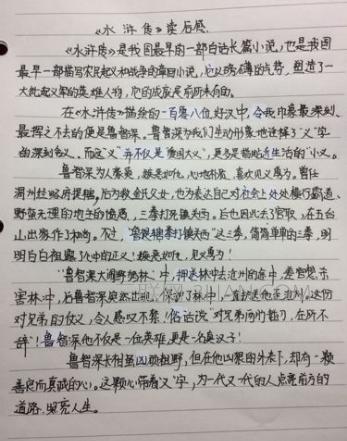 《水浒传》读后感
《水浒传》是我国最早的一部白话长篇小说,也是我国
最早一部描写农民起义和战争的章回小说,它以磅礴的气势,塑造了一
大批起义军的英雄人物,它的成就是前所未有的。
在《水浒传》描绘的一百零八位好汉中,令我印象最深刻、
最挥之不去的便是鲁智深。鲁智深为我们生动形象地诠释了"义"字
的深刻含义。而这"义"并不仅是"爱国大义",更多是指贴近生活的"小义。
鲁智深为人豪爽,嫉恶如仇,心地朴质,喜欢见义勇为。曾任
渭州经略府提辖,后为救金氏父女,也为表达自己对社会上处处横行霸道、
野蛮无理的地主的愤慨,三拳打死镇关西。后也因此丢了官职,在五台
山出家作了和尚。不过,"鲁提辖拳打镇关西"这三拳,简简单单的三拳,明
明白白袒露了他中的正义!嫉恶如仇,见义勇为!
"鲁智深大闹野猪林"中,押送林冲去沧州的途中,差官想杀
害林冲,后鲁智深突然出现,保护了林冲,一直护送他至沧州,这份
对兄弟的仗义,令人感叹不已!俗话说"对兄弟两肋插刀,在所不
辞"!鲁智深他不仅是一位英雄,更是一名真汉子!
鲁智深长相虽凶狠粗野,但在他出家的外表下,却有一颗
善良而真诚的心。这颗心带着"义"字,为一代又一代的人点亮前方的
道路,照亮人生。